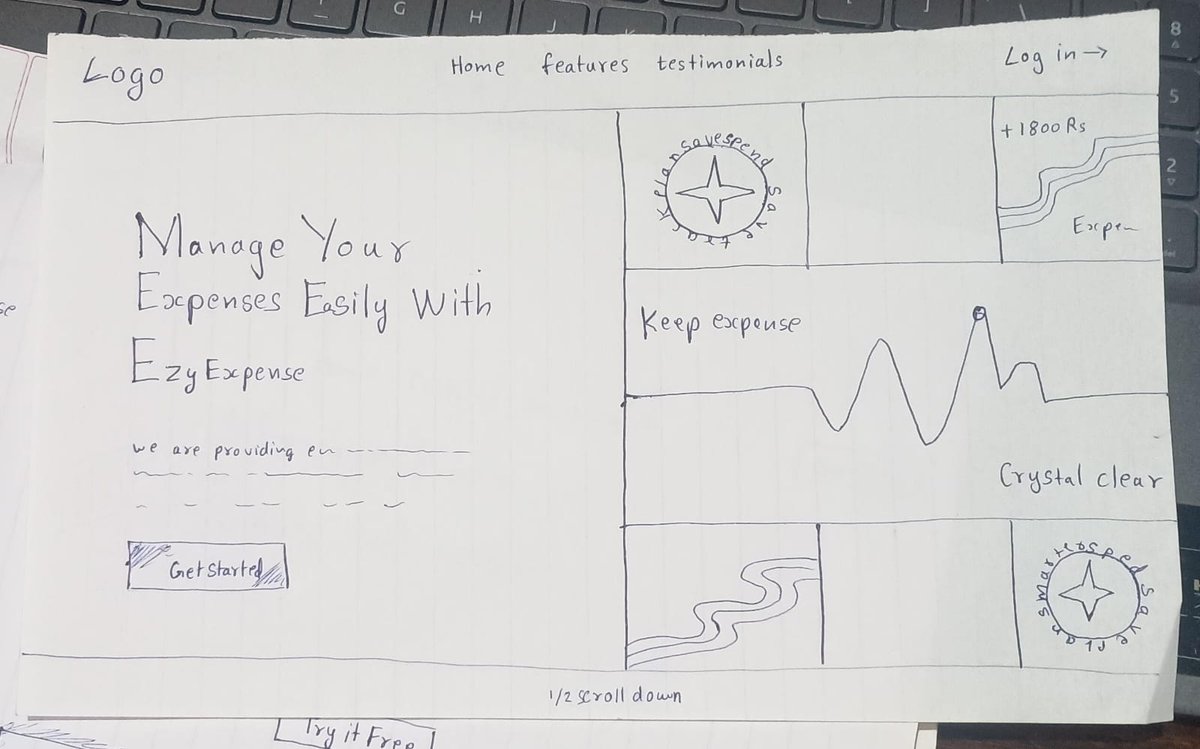 Logo
Home features testimonials
Log in →
Manage Your
Expenses Easily With
EzyExpense
we are providing en
Get Started
plan save spend save track
+1800 Rs
Expen
Keep expense
Crystal clear
1/2 scroll down
Try it Free
G
H
J
8
5
2